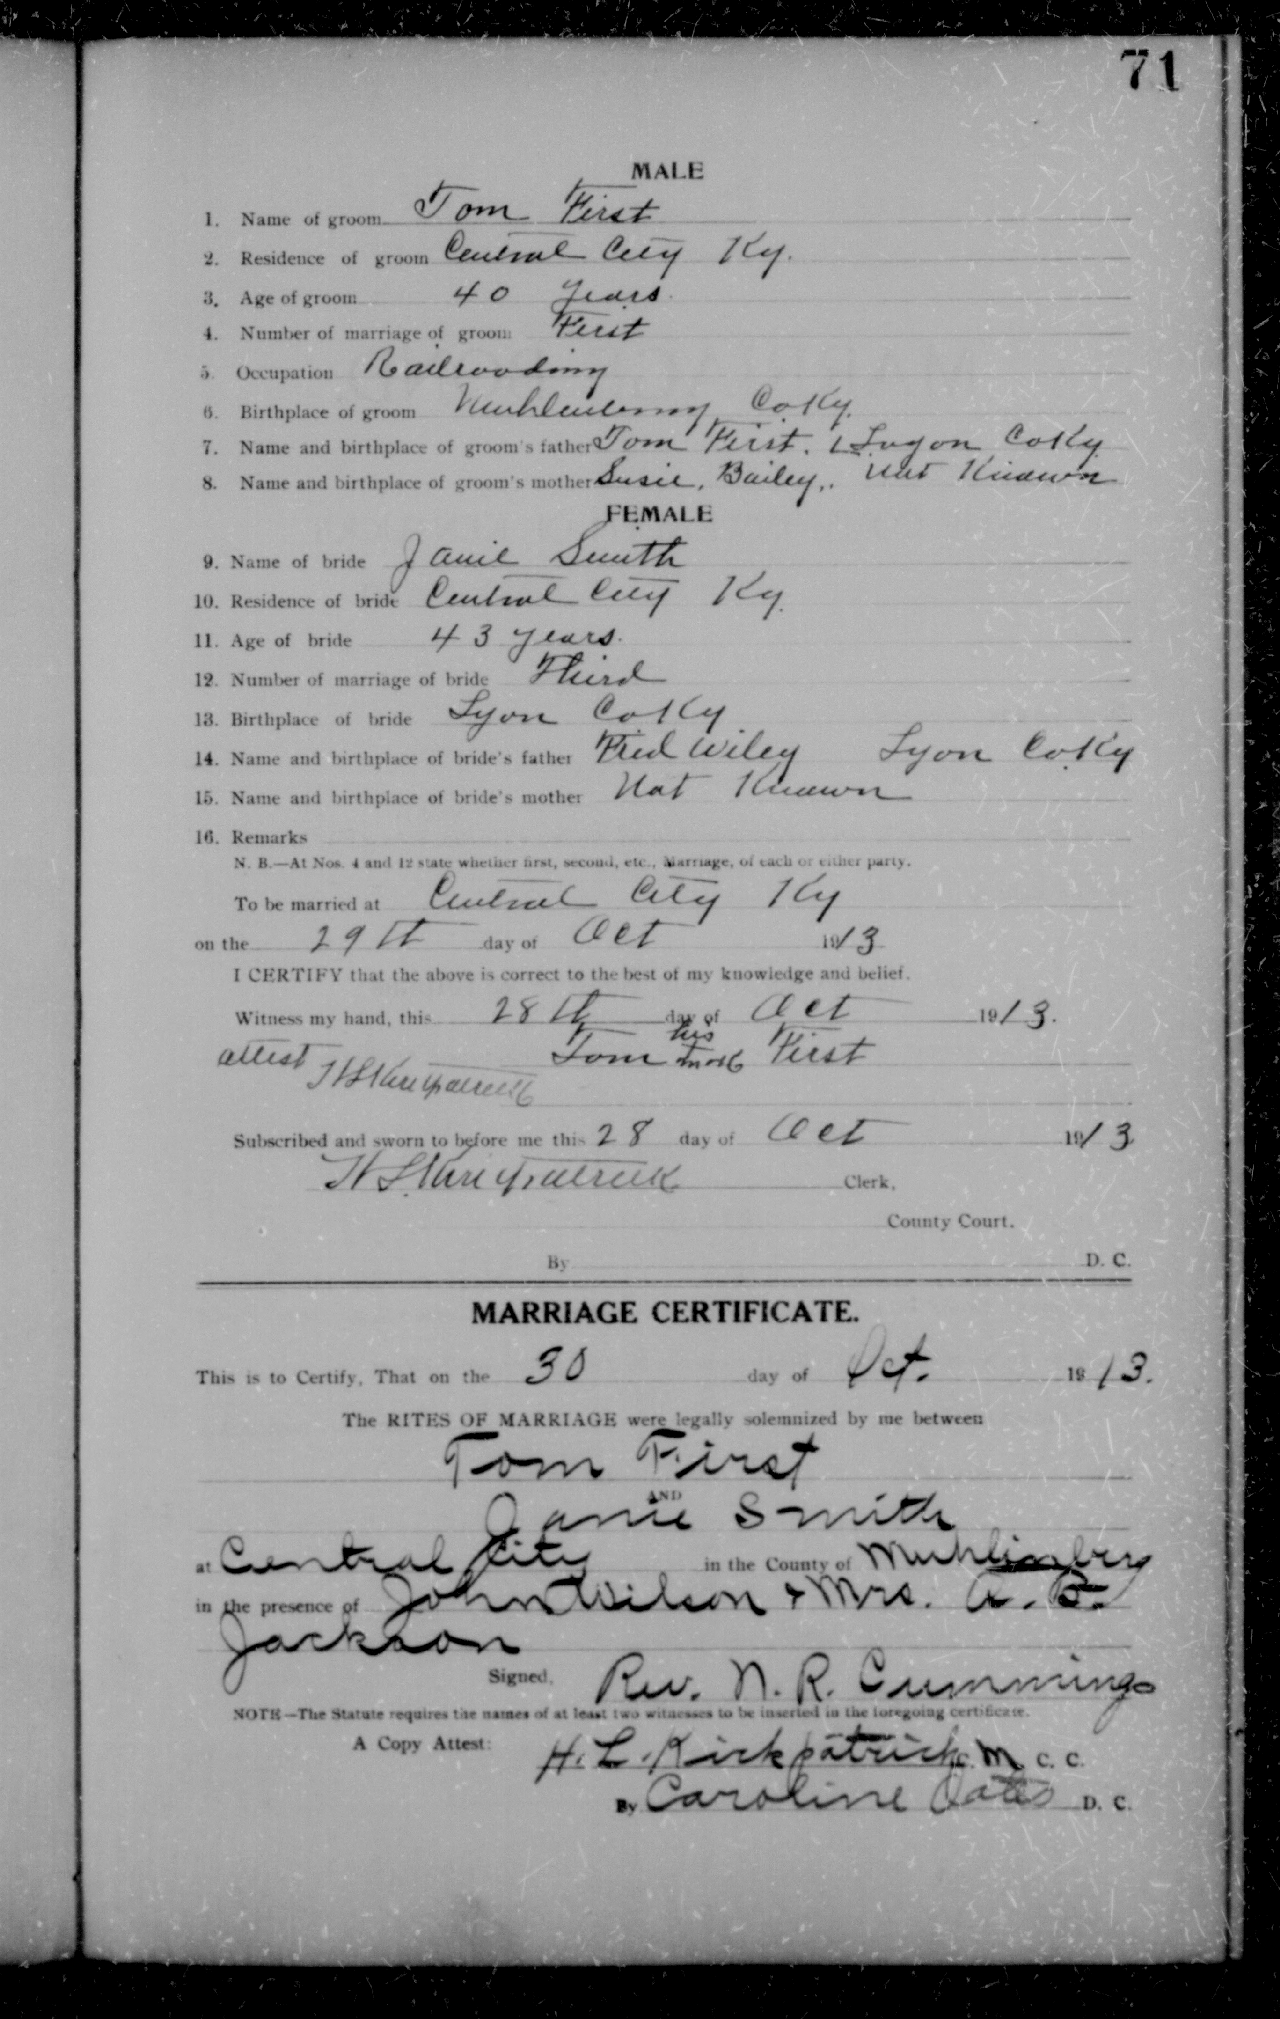 71
MALE
1. Name of groom Tom First
2. Residence of groom Central City Ky.
3. Age of groom 40 years.
4. Number of marriage of groom First
5. Occupation Railroading
6. Birthplace of groom Muhlenberg Co Ky.
7. Name and birthplace of groom's father Tom First. Co Ky
8. Name and birthplace of groom's mother Susie, Bailey,. Not Known
FEMALE
9. Name of bride Janie Smith
10. Residence of bride Central City Ky.
11. Age of bride 43 years.
12. Number of marriage of bride Third
13. Birthplace of bride Lyon Co Ky
14. Name and birthplace of bride's father Fred Wiley Lyon Co Ky
15. Name and birthplace of bride's mother Not Known
16. Remarks
N. B.—At Nos. 4 and 12 state whether first, second, etc., Marriage, of each or either party.
To be married at Central City Ky
on the 29th day of Oct 1913
I CERTIFY that the above is correct to the best of my knowledge and belief.
Witness my hand, this 28th day of Oct 1913.
his
Tom mark First
attest H L Kirkpatrick
Subscribed and sworn to before me this 28 day of Oct 1913
H L Kirkpatrick Clerk,
County Court.
By D. C.
MARRIAGE CERTIFICATE.
This is to Certify, That on the 30 day of Oct. 1913.
The RITES OF MARRIAGE were legally solemnized by me between
Tom First
AND
Janie Smith
at Central City in the County of Muhlinberg
in the presence of John Wilson & Mrs. A. B.
Jackson
Signed, Rev. N. R. Cummings
NOTE—The Statute requires the names of at least two witnesses to be inserted in the foregoing certificate.
A Copy Attest: H. L. Kirkpatrick C. M C. C.
By Caroline Oates D. C.